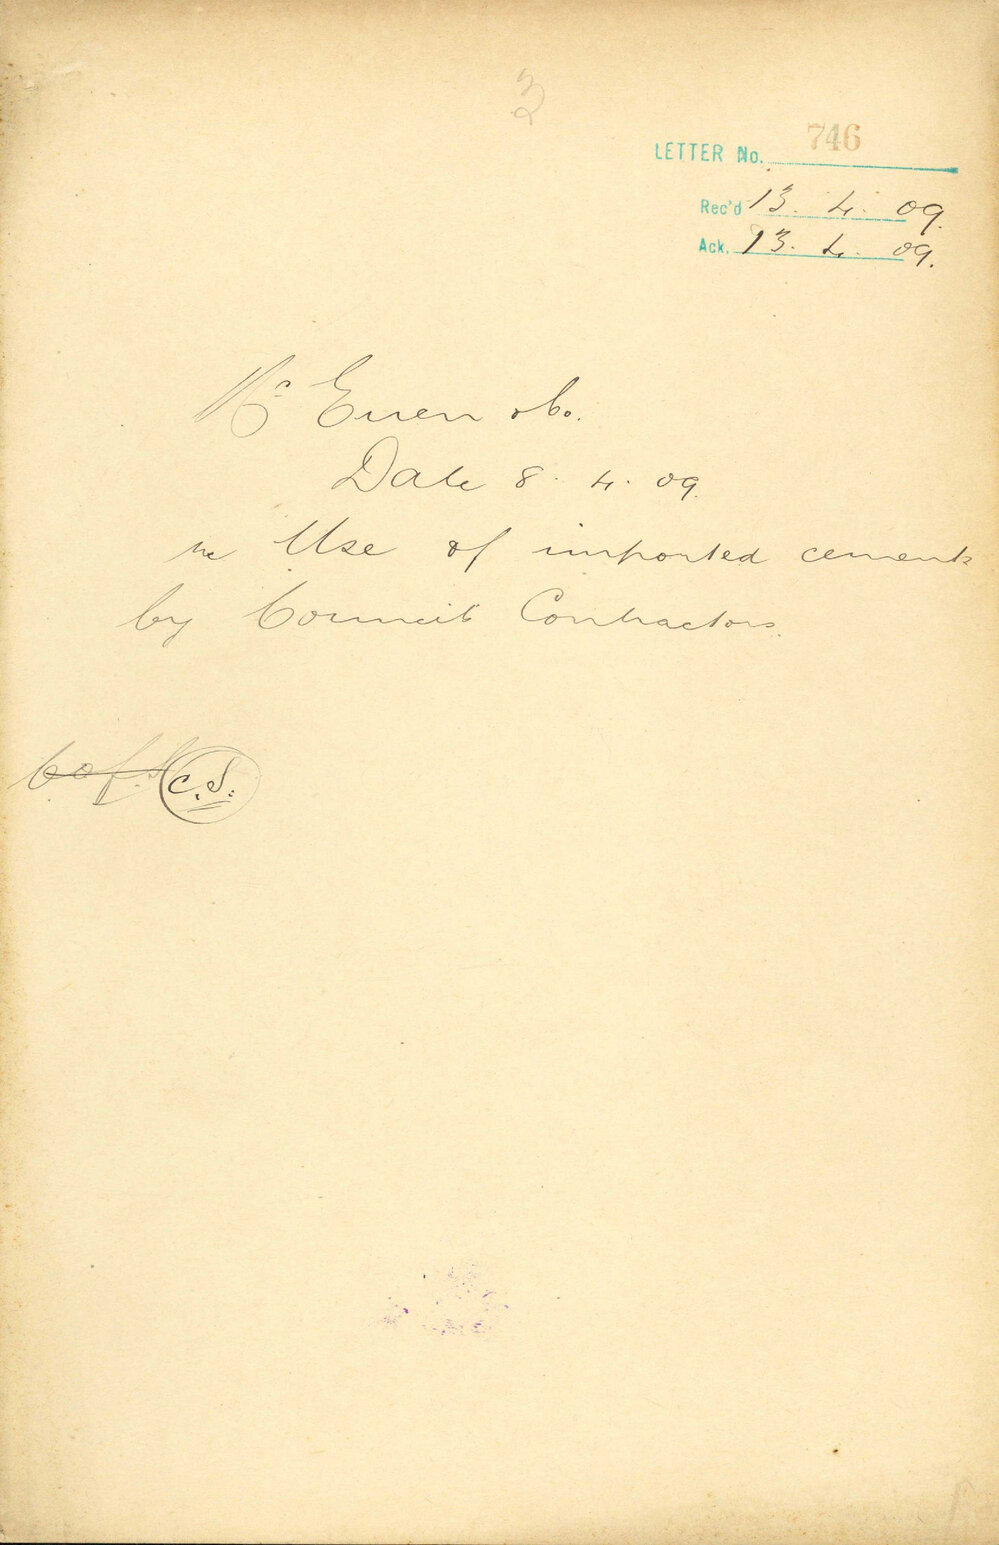 3
LETTER No. 746
Rec'd 13. 4. 09.
Ack. 13. 4. 09.
Mc Euen & Co.
Date 8. 4. 09.
re Use of imported cement
by Council Contractors.
C of
C.S.